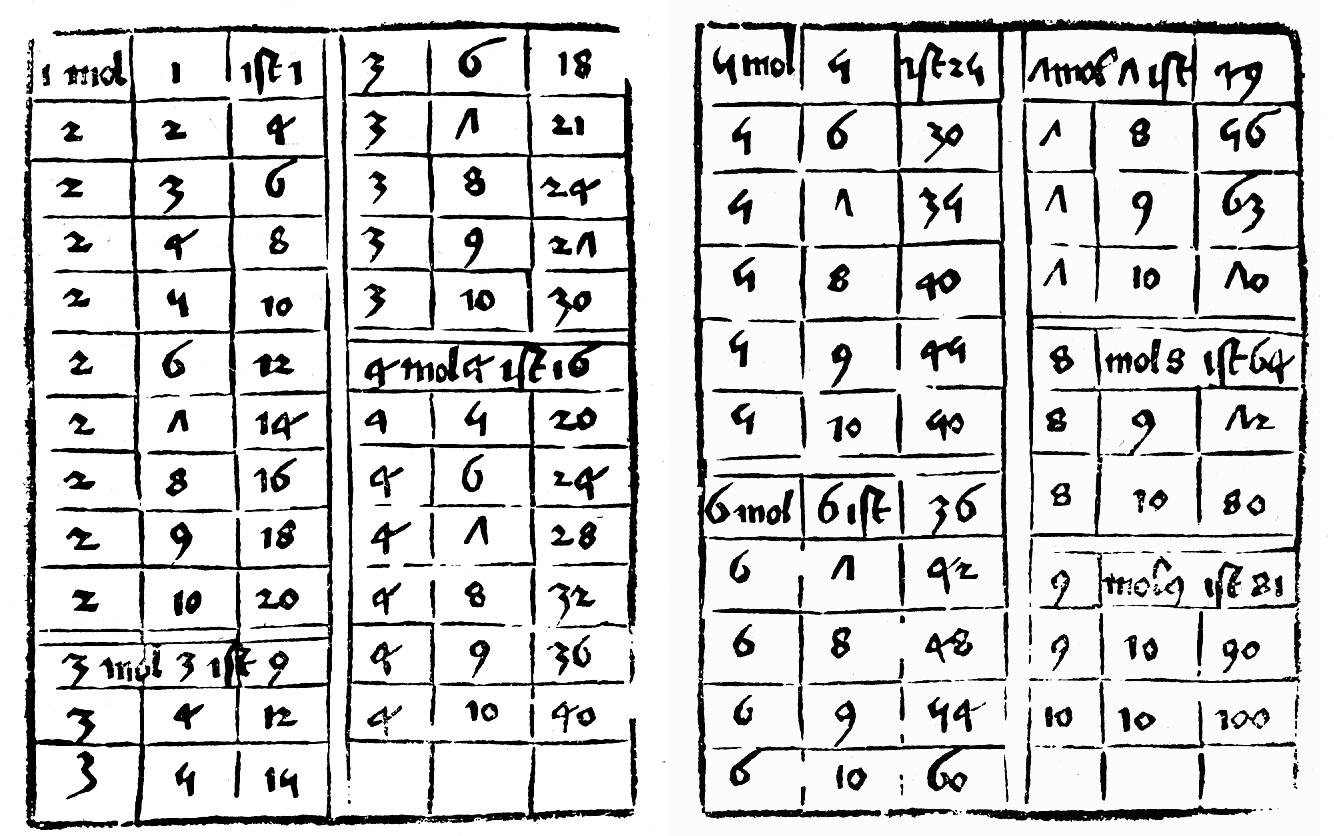 1 mol 1 ist 1
2 2 4
2 3 6
2 4 8
2 5 10
2 6 12
2 7 14
2 8 16
2 9 18
2 10 20
3 mol 3 ist 9
3 4 12
3 5 15
3 6 18
3 7 21
3 8 24
3 9 27
3 10 30
4 mol 4 ist 16
4 5 20
4 6 24
4 7 28
4 8 32
4 9 36
4 10 40
5 mol 5 ist 25
5 6 30
5 7 35
5 8 40
5 9 45
5 10 50
6 mol 6 ist 36
6 7 42
6 8 48
6 9 54
6 10 60
7 mol 7 ist 49
7 8 56
7 9 63
7 10 70
8 mol 8 ist 64
8 9 72
8 10 80
9 mol 9 ist 81
9 10 90
10 10 100